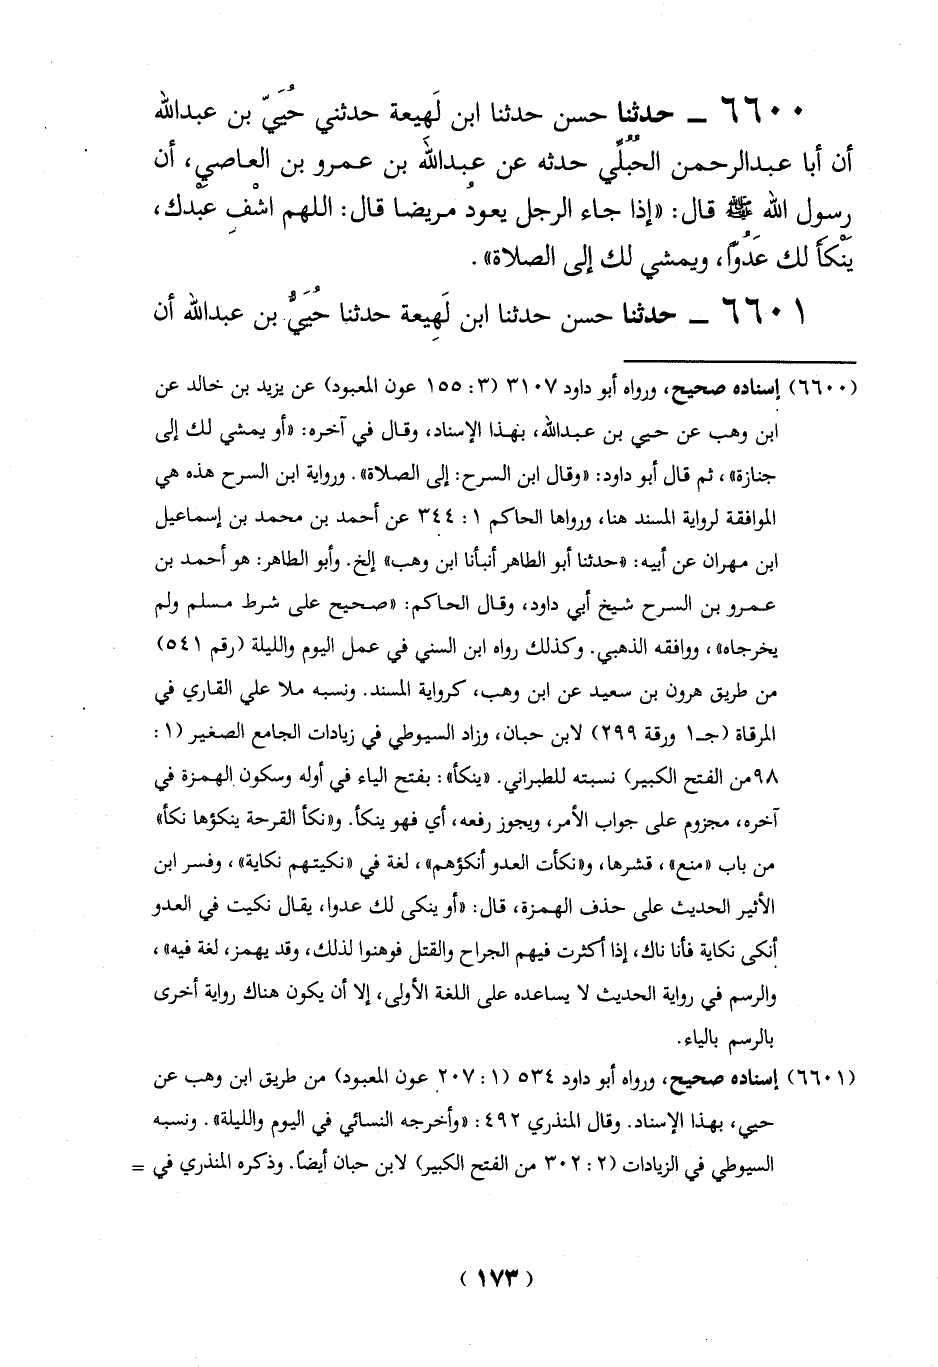 ٦٦٠٠ ــ حدثنا حسن حدثنا ابن لَهِيعة حدثني حُيَيّ بن عبدالله
أن أبا عبدالرحمن الحُبُلِّي حدثه عن عبدالله بن عمرو بن العاصي، أن
رسول الله ﷺ قال: «إذا جاء الرجل يعود مريضا قال: اللهم اشْفِ عَبْدك،
يَنْكَأْ لك عَدُوّا، ويمشي لك إلى الصلاة».
٦٦٠١ ــ حدثنا حسن حدثنا ابن لَهِيعة حدثنا حُيَيُّ بن عبدالله أن
(٦٦٠٠) إسناده صحيح، ورواه أبو داود ٣١٠٧ (٣: ١٥٥ عون المعبود) عن يزيد بن خالد عن
ابن وهب عن حيي بن عبدالله، بهذا الإسناد، وقال في آخره: «أو يمشي لك إلى
جنازة»، ثم قال أبو داود: «وقال ابن السرح: إلى الصلاة». ورواية ابن السرح هذه هي
الموافقة لرواية المسند هنا، ورواها الحاكم ١: ٣٤٤ عن أحمد بن محمد بن إسماعيل
ابن مهران عن أبيه: «حدثنا أبو الطاهر أنبأنا ابن وهب» إلخ. وأبو الطاهر: هو أحمد بن
عمرو بن السرح شيخ أبي داود، وقال الحاكم: «صحيح على شرط مسلم ولم
يخرجاه»، ووافقه الذهبي. وكذلك رواه ابن السني في عمل اليوم والليلة (رقم ٥٤١)
من طريق هرون بن سعيد عن ابن وهب، كرواية المسند. ونسبه ملا علي القاري في
المرقاة (جـ١ ورقة ٢٩٩) لابن حبان، وزاد السيوطي في زيادات الجامع الصغير (١:
٩٨من الفتح الكبير) نسبته للطبراني. «ينكأ»: بفتح الياء في أوله وسكون الهمزة في
آخره، مجزوم على جواب الأمر، ويجوز رفعه، أي فهو ينكأ. و«نكأ القرحة ينكؤها نكأ»
من باب «منع»، قشرها، و«نكأت العدو أنكؤهم»، لغة في «نكيتهم نكاية»، وفسر ابن
الأثير الحديث على حذف الهمزة، قال: «أو ينكى لك عدوا، يقال نكيت في العدو
أنكى نكاية فأنا ناك، إذا أكثرت فيهم الجراح والقتل فوهنوا لذلك، وقد يهمز، لغة فيه»،
والرسم في رواية الحديث لا يساعده على اللغة الأولى، إلا أن يكون هناك رواية أخرى
بالرسم بالياء.
(٦٦٠١) إسناده صحيح، ورواه أبو داود ٥٣٤ (١: ٢٠٧ عون المعبود) من طريق ابن وهب عن
حيي، بهذا الإسناد. وقال المنذري ٤٩٢: «وأخرجه النسائي في اليوم والليلة». ونسبه
السيوطي في الزيادات (٢: ٣٠٢ من الفتح الكبير) لابن حبان أيضاً. وذكره المنذري في =
(١٧٣)